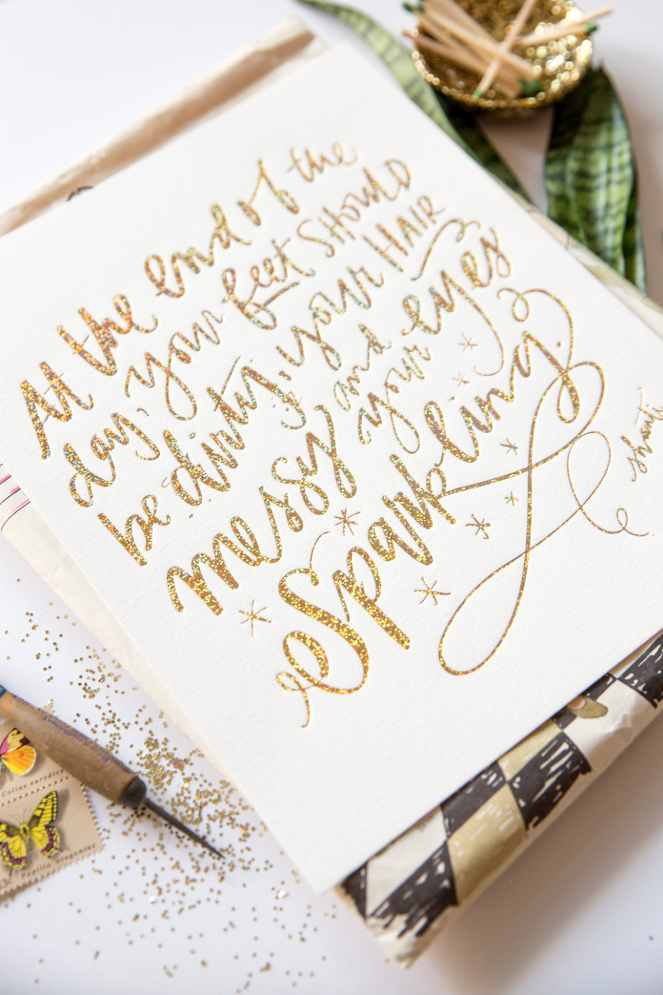 At the end of the
day, your feet SHOULD
be dirty, your HAIR
messy and your eyes
Sparkling.
Colias eurydice